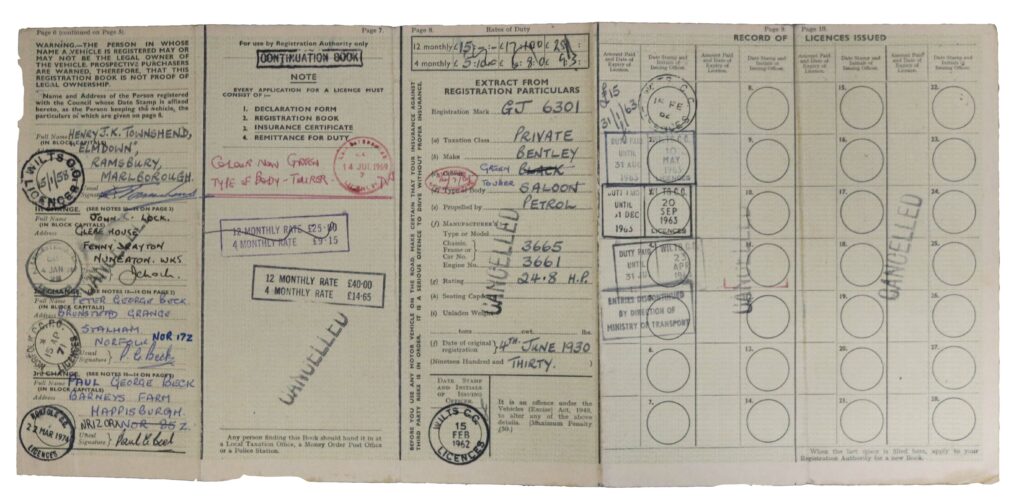 Page 6 (continued on Page 5).
WARNING.—THE PERSON IN WHOSE
NAME A VEHICLE IS REGISTERED MAY OR
MAY NOT BE THE LEGAL OWNER OF
THE VEHICLE. PROSPECTIVE PURCHASERS
ARE WARNED, THEREFORE, THAT THIS
REGISTRATION BOOK IS NOT PROOF OF
LEGAL OWNERSHIP.
Name and Address of the Person registered
with the Council whose Date Stamp is affixed
hereto, as the Person keeping the vehicle, the
particulars of which are given on page 8.
Full Name HENRY J.K. TOWNSHEND,
(IN BLOCK CAPITALS)
"ELMDOWN"
RAMSBURY,
MARLBOROUGH.
WILTS C.C.
15/1/58
LICENCES
CHANGE. (SEE NOTES
Full Name JOHN C. LOCK.
(IN BLOCK CAPITALS)
Address GLEBE HOUSE
FENNY DRAYTON
NUNEATON. WKS.
Full Name PETER GEORGE BECK
(IN BLOCK CAPITALS)
Address BRUNSTEAD GRANGE
STALHAM
NORFOLK NOR 17Z
Usual Signature P. G. Beck
LICENCES
3RD CHANGE.
Full Name PAUL GEORGE BECK
(IN BLOCK CAPITALS)
Address BARNEYS FARM
HAPPISBURGH.
Usual Signature Paul G Beck
NORFOLK C.C.
22 MAR 1974
LICENCES
Page 7.
For use by Registration Authority only
CONTINUATION BOOK
NOTE
EVERY APPLICATION FOR A LICENCE MUST
CONSIST OF:—
1. DECLARATION FORM
2. REGISTRATION BOOK
3. INSURANCE CERTIFICATE
4. REMITTANCE FOR DUTY
COLOUR NOW GREEN
TYPE OF BODY - TOURER.
14 JUL 1969
12 MONTHLY RATE £25·00
4 MONTHLY RATE £9·15
12 MONTHLY RATE £40·00
4 MONTHLY RATE £14·65
CANCELLED
Any person finding this Book should hand it in at
a Local Taxation Office, a Money Order Post Office
or a Police Station.
BEFORE YOU USE ANY MOTOR VEHICLE ON THE ROAD MAKE CERTAIN THAT YOUR INSURANCE AGAINST
THIRD PARTY RISKS IS IN ORDER. IT IS A SERIOUS OFFENCE TO DRIVE WITHOUT PROPER INSURANCE.
Page 8. Rates of Duty
12 monthly £15
4 monthly £5:10
EXTRACT FROM
REGISTRATION PARTICULARS
Registration Mark GJ 6301
(a) Taxation Class PRIVATE
(b) Make BENTLEY
GREEN BLACK
TOURER
(d) Type of Body SALOON
(e) Propelled by PETROL
(f) MANUFACTURER'S
Type or Model
Chassis,
Frame or
Car No. 3665
Engine No. 3661
(g) Rating 24·8 H.P.
(h) Seating Capacity
(i) Unladen Weight
tons cwt. lbs.
CANCELLED
(j) Date of original
registration 4TH JUNE 1930
(Nineteen Hundred and THIRTY.
DATE STAMP
AND INITIALS
OF ISSUING
OFFICER.
WILTS C.C.
15
FEB
1962
LICENCES
It is an offence under the
Vehicles (Excise) Act, 1949,
to alter any of the above
details. (Maximum Penalty
£50.)
Page 9.
RECORD OF
Page 10.
LICENCES ISSUED
Amount Paid and Date of Expiry of Licence.
Date Stamp and Initials of Issuing Officer.
Amount Paid and Date of Expiry of Licence.
Date Stamp and Initials of Issuing Officer.
Amount Paid and Date of Expiry of Licence.
Date Stamp and Initials of Issuing Officer.
Amount Paid and Date of Expiry of Licence.
Date Stamp and Initials of Issuing Officer.
£15
31/1/63
15 FE
DUTY PAID
UNTIL
31 AUG
10
MAY
1963
DUTY PAID
UNTIL
31 DEC
1963
WILTS C.C.
20
SEP
1963
LICENCES
DUTY PAID
UNTIL
31 JU
WILTS C.C.
APR
ENTRIES DISCONTINUED
BY DIRECTION OF
MINISTRY OF TRANSPORT
CANCELLED
CANCELLED
When the last space is filled here, apply to your
Registration Authority for a new Book.